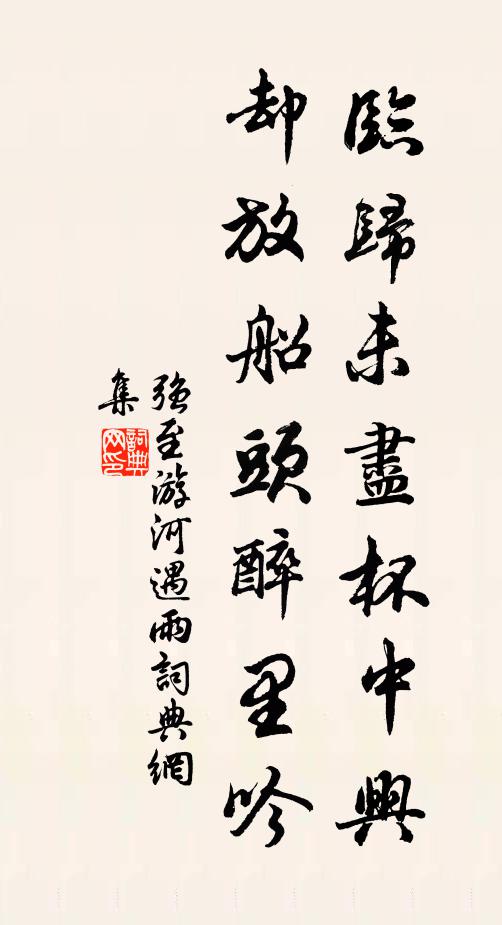 臨歸未盡杯中興
却放船頭醉里吟
强至游河遇雨詞典網
集
詞典
网印